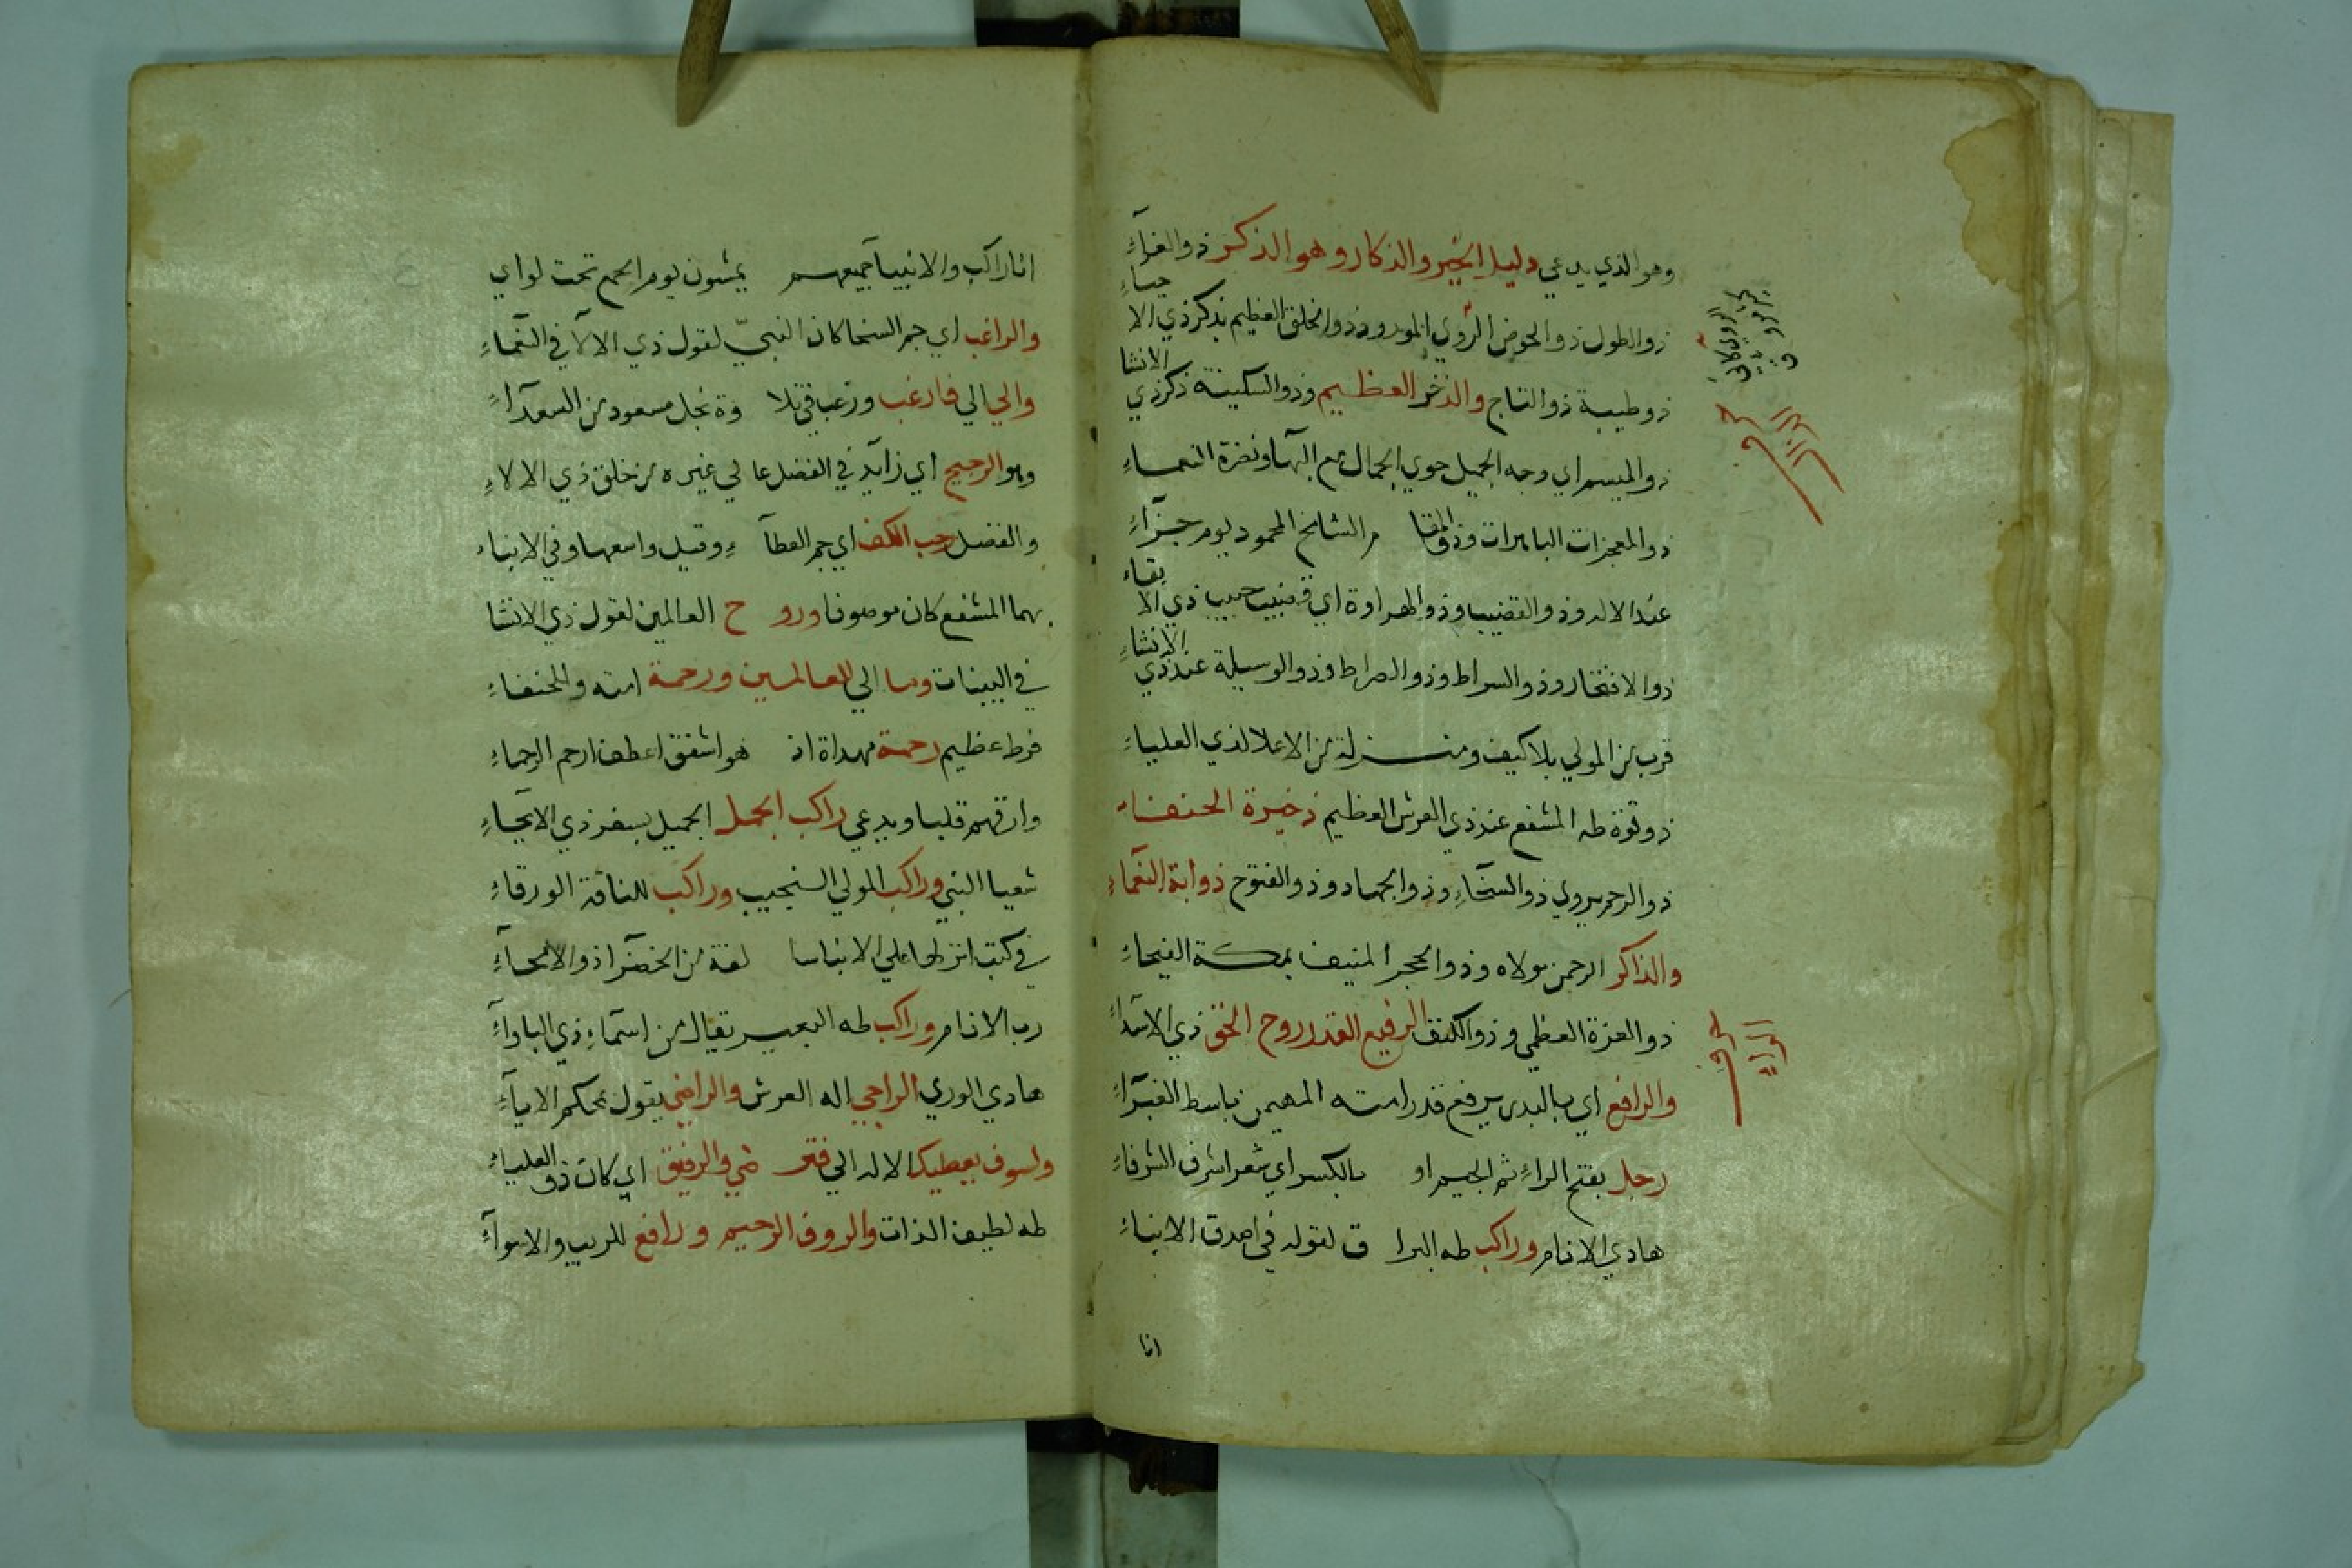 وهو الذي يدعي دليل الخير والذكار وهو الذكر ذو الغراء
ذو الطول ذو الحوض الروي المورود وذو الخلق العظيم بذكر ذي الا حياء
ذو طيبة ذو التاج والذخر العظيم وذو السكينة ذكر ذي الانشا
ذو الميسم اي وجه الجميل حوي الجمال مع البها ونضرة النعماء
ذو المعجزات الباهرات وذو المقا م الشامخ المحمود ليوم جزاء
عند الاله وذو القضيب وذو الهراوة اي قضيب حبيب ذي الا بقاء
ذو الافتخار وذو السراط وذو الصراط وذو الوسيلة عند ذي الانشاء
قرب من المولي بلا كيف ومنـزلة من الاعلا لذي العلياء
ذو قوة طه المشفع عند ذي العرش العظيم ذخيرة الحنفاء
ذو الرحم يروي ذو السخاء وذو الجهاد وذو الفتوح ذوابة النعماء
والذاكر الرحمن مولاه وذو الحجر المنيف بمكة الفيحاء
ذو العزة العظمي وذو الكنف الرفيع القدر روح الحق ذي الاسداء
حرف الراء
والرافع اي بالبدر يرفع قدر امته المهيمن باسط الغبراء
رجل بفتح الراء ثم الجيم او بالكسر اي شعر اشرف الشرفاء
هادي الانام وراكب طه البرا ق لقوله في اصدق الانباء
انا
انا راكب والانبيا جميعهم يمشون يوم الجمع تحت لواي
والراغب اي جم السخا كان النبي لقول ذي الالا في النعماء
والي الي فارغب ورغب في تلا وة نجل مسعود من السعداء
وهو الرجيح اي زايد في الفضل عا لي غيره من خلق ذي الالاء
والفضل رحب الكف اي جم العطآ ء وقيل واسعها وفي الانباء
بهما المشفع كان موصوفا ورو ح العالمين لقول ذي الانشا
في البينات وما الي للعالمين ورحمة امته وللحنفاء
فرط عظيم رحمة مهداة اذ هو اشفق اعطف ارحم الرحماء
وارقهم قلبا ويدعي راكب الجمل الجميل بسفر ذي الايحاء
شعيا النبي وراكب المولي النجيب وراكب للناقة الورقاء
في كتب انزلها علي الانبا سا لفة من الخضرا ذو الايحاء
رب الانام وراكب طه البعير تقال من اسماء ذي الباواء
هادي الوري الراجي اله العرش والراضي يقول محكم الاياء
ولسوف يعطيك الاله الي فتر ضي والرفيق اي كان ذو العلياء
طه لطيف الذات والروف الرحيم ورافع للريب والاسواء